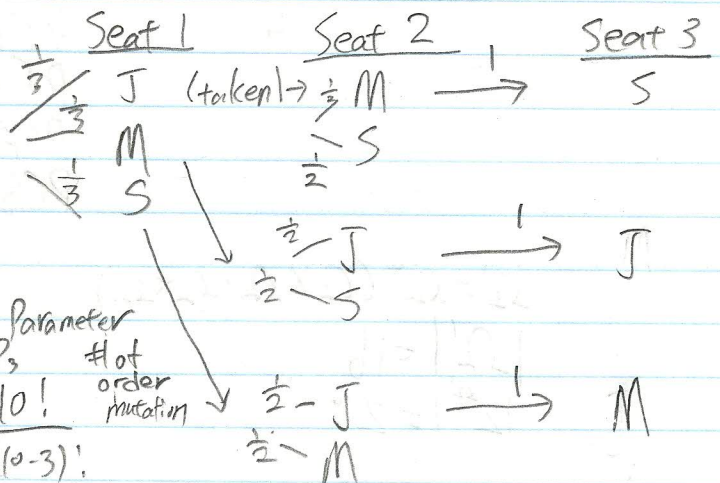 Seat 1 Seat 2 Seat 3
1/3 J (taken)→ 1/3 M 1 → S
1/3 M
1/2 S
1/3 S
1/2 J 1 → J
1/2 S
Parameter
P3 # of
order
10! mutation 1/2 - J 1 → M
(0-3)! 1/2 M